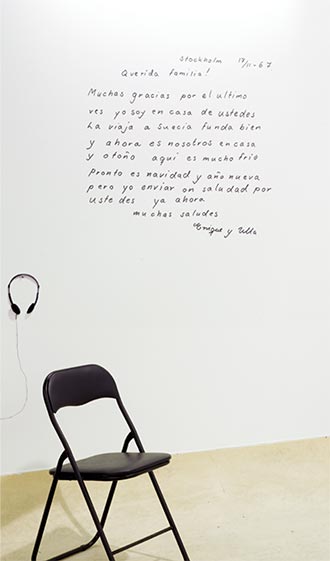 Stockholm 17/11-67
Querida familia!
Muchas gracias por el ultimo
ves yo soy en casa de ustedes
La viaja a suecia funda bien
y ahora es nosotros en casa
y otoño aqui es mucho frio
Pronto es navidad y año nueva
pero yo enviar on saludad por
ustedes ya ahora
muchas saludes
Enrique y Ulla